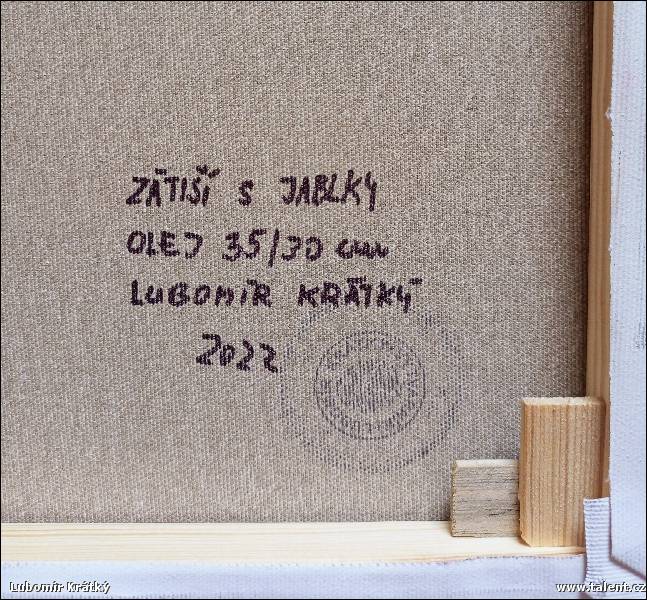 ZÁTIŠÍ S JABLKY
OLEJ 35/30 cm
LUBOMÍR KRÁTKÝ
2022
Lubomír Krátký
www.talent.cz